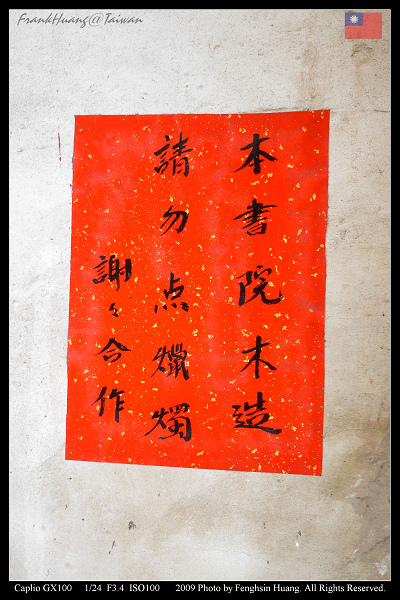 FrankHuang@Taiwan
本書院木造
請勿点爉燭
謝々合作
Caplio GX100 1/24 F3.4 ISO100 2009 Photo by Fenghsin Huang. All Rights Reserved.